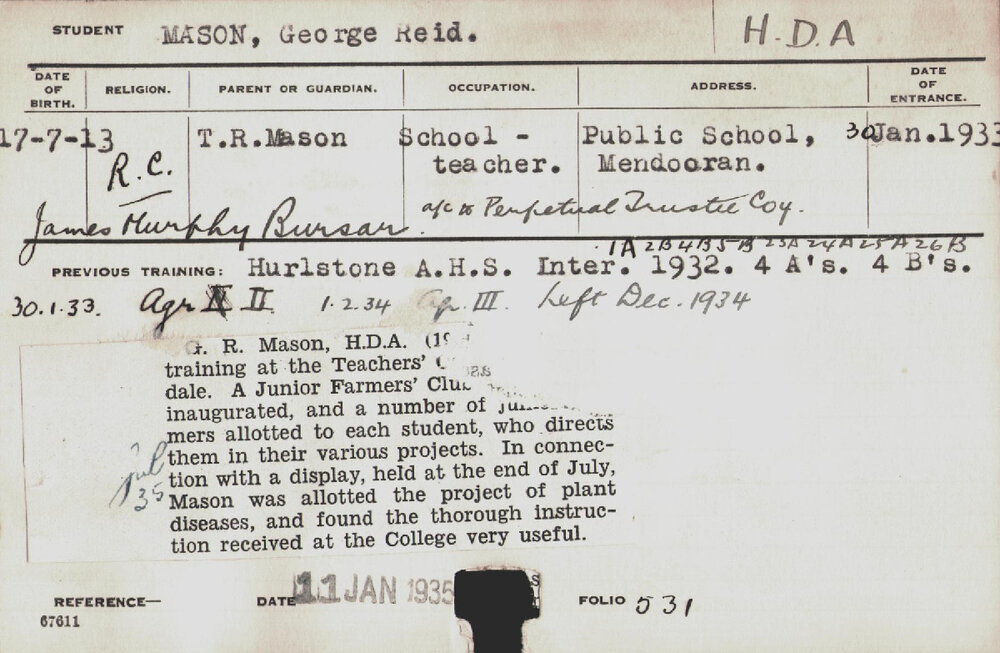 STUDENT MASON, George Reid. H.D.A
DATE OF BIRTH. RELIGION. PARENT OR GUARDIAN. OCCUPATION. ADDRESS. DATE OF ENTRANCE.
17-7-13 R.C. T.R.Mason School - Public School, 30 Jan. 1933
teacher. Mendooran.
James Murphy Bursar. a/c to Perpetual Trustee Coy.
1A 2B 4B 5B 23A 24A 25A 26B
PREVIOUS TRAINING: Hurlstone A.H.S. Inter. 1932. 4 A's. 4 B's.
30.1.33. Agr II 1.2.34 III. Left Dec. 1934
G. R. Mason, H.D.A.
training at the Teachers'
dale. A Junior Farmers' Club
inaugurated, and a number of
mers allotted to each student, who directs
them in their various projects. In connec-
tion with a display, held at the end of July,
Mason was allotted the project of plant
diseases, and found the thorough instruc-
tion received at the College very useful.
Jul 35
REFERENCE— DATE 11 JAN 1935 FOLIO 531
67611